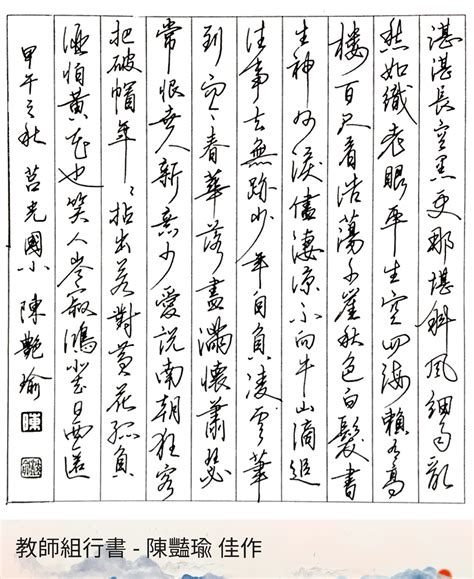 湛湛長空黑更那堪斜風細雨亂
愁如織老眼平生空四海賴有高
樓百尺看浩蕩千崖秋色白髮書
生神州淚儘淒涼不向牛山滴追
往事去無跡少年自負凌雲筆
到而今春華落盡滿懷蕭瑟
常恨世人新意少愛說南朝狂客
把破帽年々拈出若對黃花孤負
酒怕黃花也笑人岑寂鴻北去日西匿
甲午之秋 莒光國小 陳艷瑜
陳
教師組行書 - 陳豔瑜 佳作